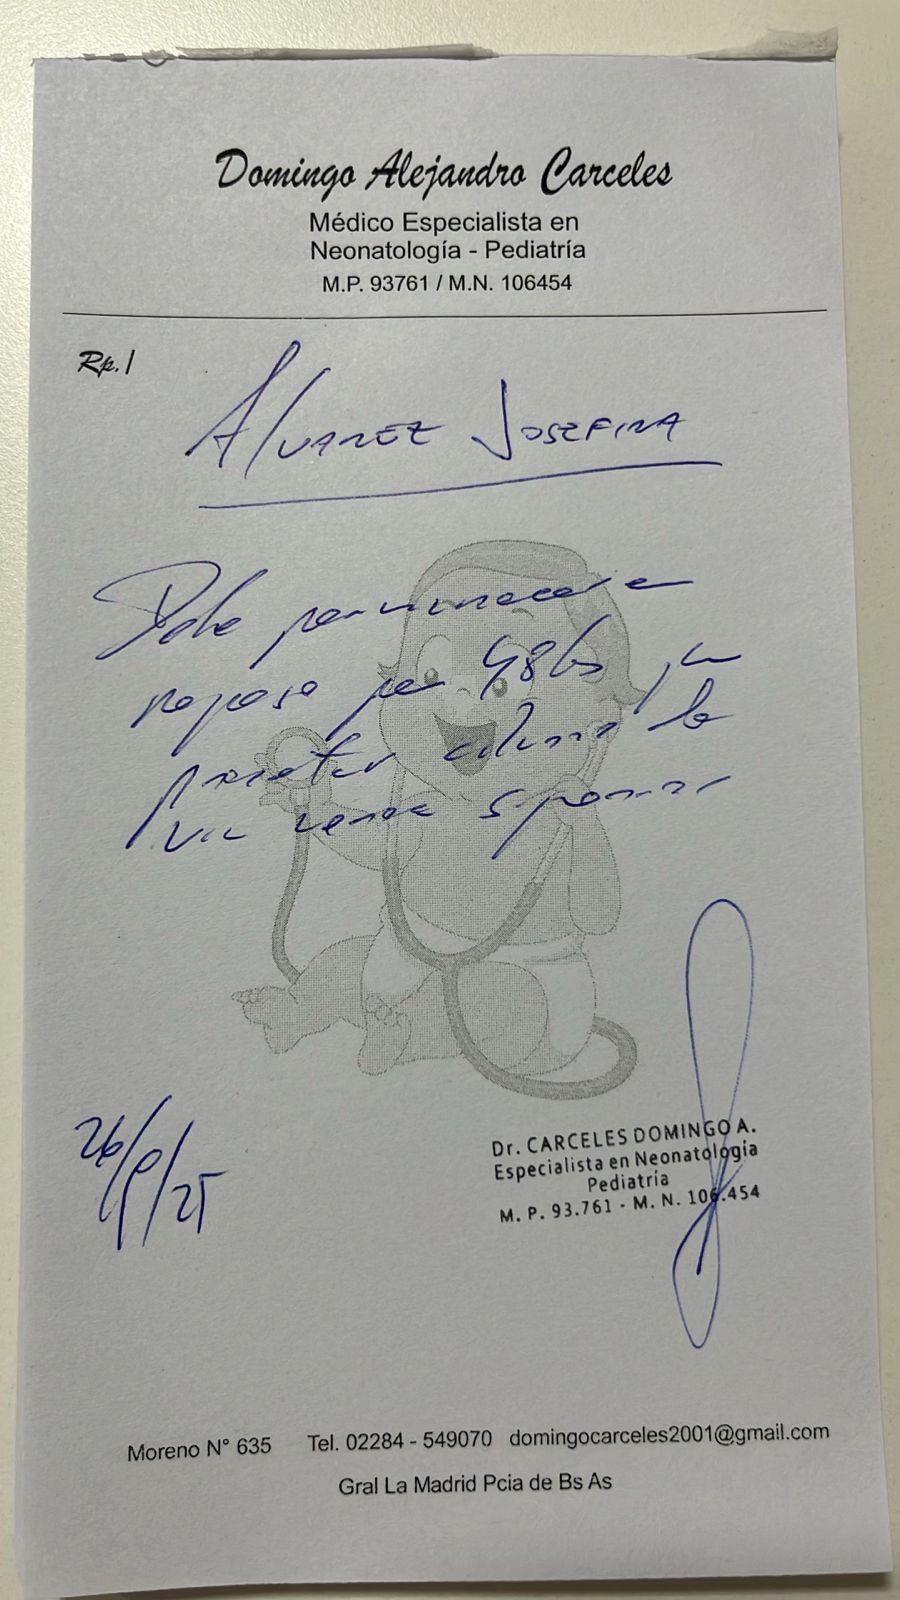 Domingo Alejandro Carceles
Médico Especialista en
Neonatología - Pediatría
M.P. 93761 / M.N. 106454
Rp./
Alvarez Josefina
Debe permanecer en
reposo por 48 hs por
presentar
26/9/25
Dr. CARCELES DOMINGO A.
Especialista en Neonatología
Pediatría
M. P. 93.761 - M. N. 106.454
Moreno N° 635 Tel. 02284 - 549070 domingocarceles2001@gmail.com
Gral La Madrid Pcia de Bs As